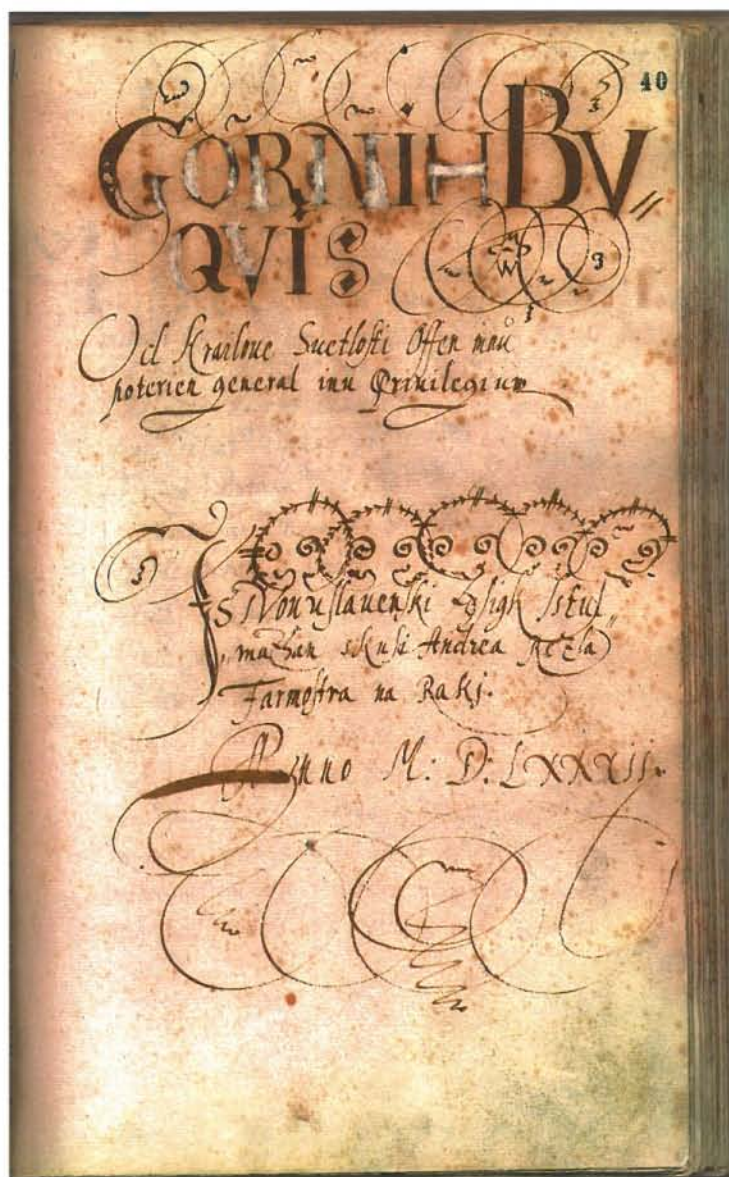 40
GORNIH BV〃
QVIS
Od Krailove Suetlosti Offen innu
poterien general inu Priuilegium
Is Nouuslauenski
skusi Andrea
Farmoſtra na Raki.
Anno M: D: LXXXII.